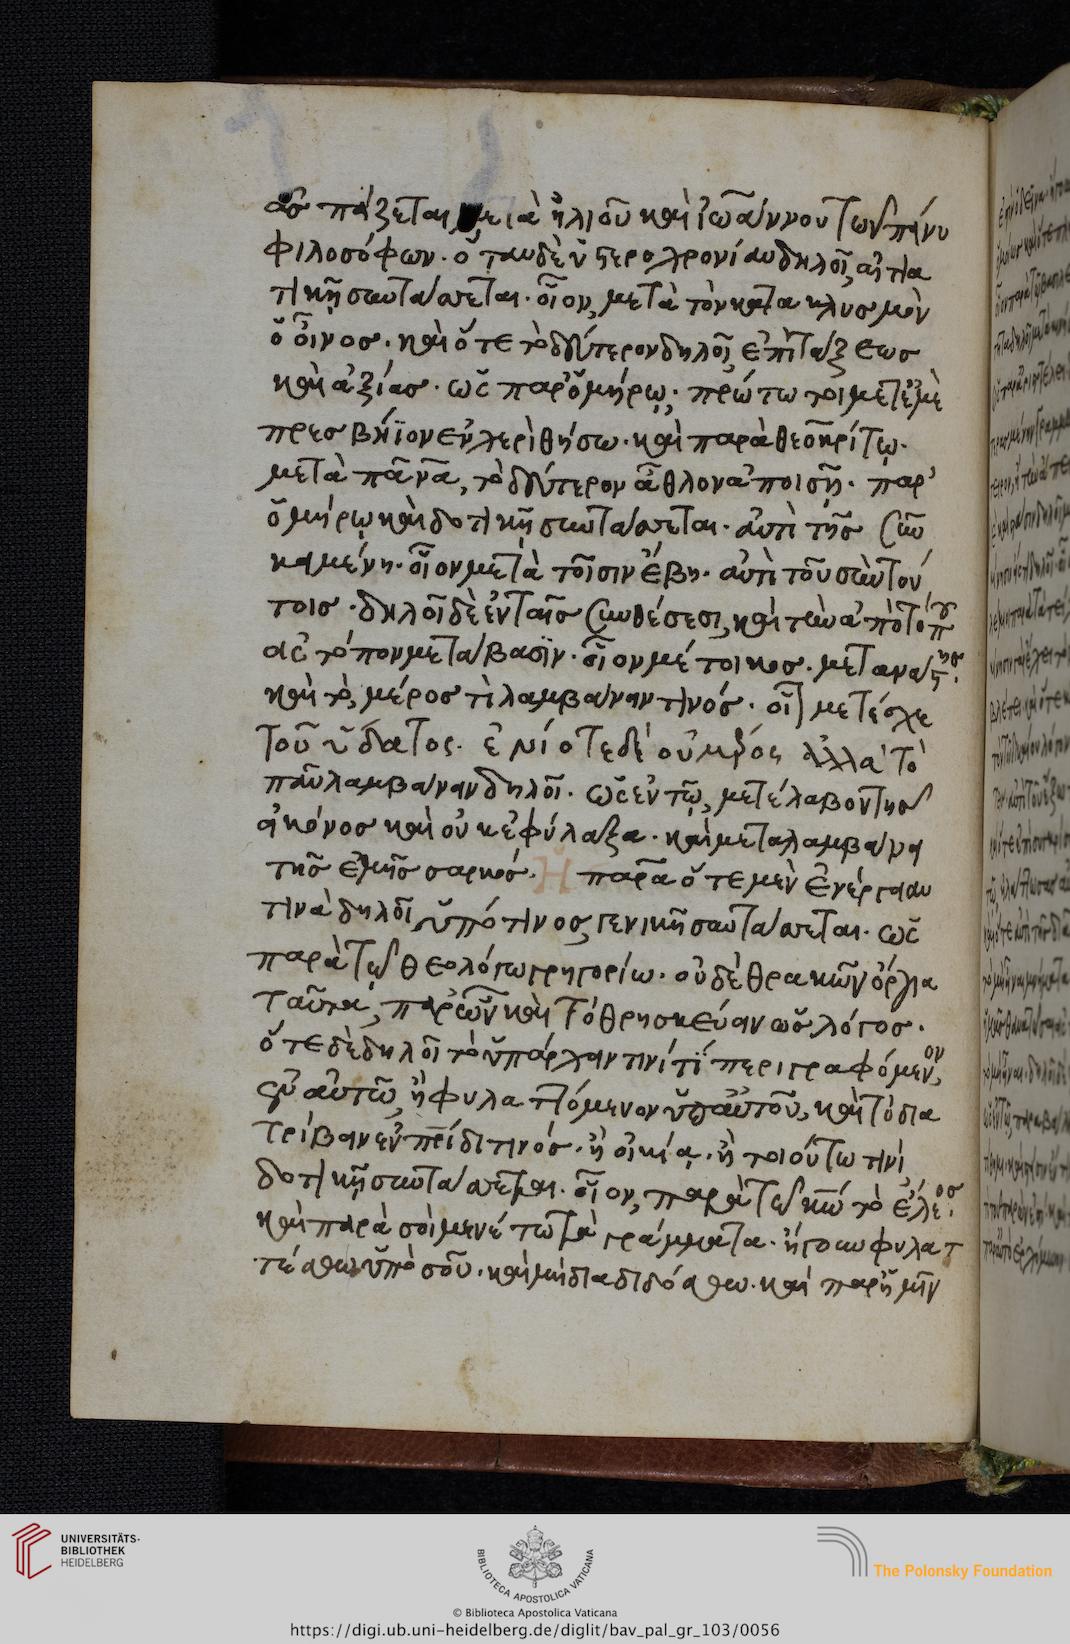 ἀσπάζεται μετὰ ἡλιοῦ καὶ ἰωάννου τῶν πάνυ
φιλοσόφων· ὅταν δὲ ὑστεροχρονίαν δηλοῖ, αἰτια
τικῇ συντάσσεται· οἷον, μετὰ τὸν κατακλυσμὸν
ὁ οἶνος· καὶ ὅτε τὸ δεύτερον δηλοῖ ἐπὶ τάξεως
καὶ ἀξίας· ὡς παρ' ὁμήρῳ· πρώτω τοι μετ' ἐμὲ
πρεσβήϊον ἐν χερὶ θήσω· καὶ παρὰ θεοκρίτῳ·
μετὰ πᾶνα, τὸ δεύτερον ἆθλον ἀποισῇ· παρ'
ὁμήρῳ καὶ δοτικῇ συντάσσεται· ἀντὶ τῆς
καμένη· οἷον μετὰ τοῖσιν ἔβη· ἀντὶ τοῦ σὺν τού
τοις· δηλοῖ δὲ ἐν ταῖς συνθέσεσι, καὶ τὴν ἀπὸ τόπου
εἰς τόπον μετάβασιν· οἷον μέτοικος· μετανάστης·
καὶ τὸ, μέρος τι λαμβάνειν τινός· οἷον μετέσχε
τοῦ ὕδατος· ἐνίοτε δὲ οὐ μέρος ἀλλὰ τὸ
πᾶν λαμβάνειν δηλοῖ· ὡς ἐν τῷ, μετέλαβον τῆς
εἰκόνος καὶ οὐκ ἐφύλαξα· καὶ μεταλαμβάνει
τῆς ἐμῆς σαρκός· Η παρὰ ὅτε μὲν ἐνέργειαν
τινὰ δηλοῖ ὑπό τινος, γενικῇ συντάσσεται· ὡς
παρὰ τῷ θεολόγω γρηγορίω· οὐδὲ θρακῶν ὄργια
ταῦτα, παρ' ὧν καὶ τὸ θρησκεύειν ὡς λόγος·
ὅτε δὲ δηλοῖ τὸ ὑπάρχειν τινί τι περιγραφόμενον,
ὑπ' αὐτοῦ, ἢ φυλαττόμενον ὑπ' αὐτοῦ, καὶ τὸ δια
τρίβειν ἐν πεδίῳ τινός· ἢ οἰκίᾳ· ἢ τοιούτω τινὶ,
δοτικῇ συντάσσεται· οἷον, παρὰ τῷ κυρίῳ τὸ ἔλεος·
καὶ παρὰ σοὶ μενέτω τὰ γράμματα· ἤγουν φυλατ
τέσθω ὑπὸ σοῦ· καὶ μὴ διαδιδόσθω· καὶ παρ' ἡμῖν
UNIVERSITÄTS-
BIBLIOTHEK
HEIDELBERG
BIBLIOTECA APOSTOLICA VATICANA
The Polonsky Foundation
© Biblioteca Apostolica Vaticana
https://digi.ub.uni-heidelberg.de/diglit/bav_pal_gr_103/0056